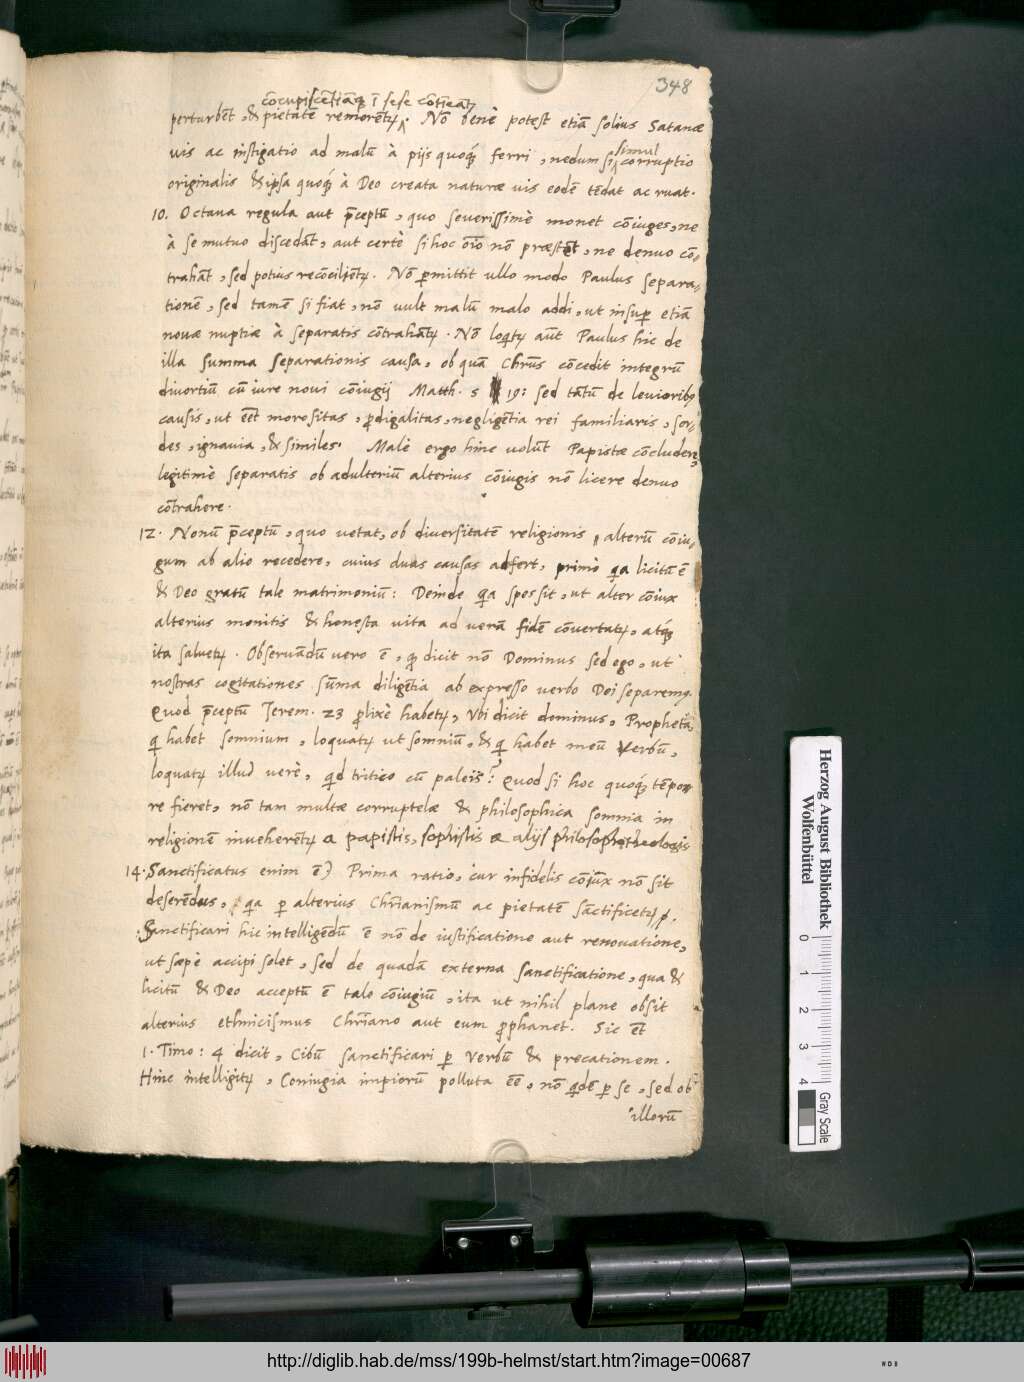 348
cōcupiscētiāq̃ ī sese cōtīeāt
perturbēt, & pietatē remorēt. Nō benè potest etiā solius Satanæ
uis ac instigatio ad malū à pijs quoq; ferri, nedum si simul corruptio
originalis & ipsa quoq; à Deo creata naturæ uis eodē tēdat ac ruat.
10. Octaua regula aut p̄ceptū, quo seuerissimè monet cōiuges, ne
à se mutuo discedāt, aut certè si hoc oīo nō præstēt, ne denuo cō-
trahāt, sed potius recōciliēt. Nō p̱mittit ullo modo Paulus separa-
tionē, sed tamē si fiat, nō uult malū malo addi, ut insup̱ etiā
nouæ nuptiæ à separatis cōtrahāt. Nō loq̄t aūt Paulus hic de
illa summa separationis causa, ob quā Chr̄us cōcedit integrū
diuortiū cū iure noui cōiugij Matth. 5 19: sed tātū de leuiorib
causis, ut eēt morositas, ꝓdigalitas, negligētia rei familiaris, sor-
des, ignauia, & similes. Malè ergo hinc uolūt Papistæ cōcludere,
legitimè separatis ob adulteriū alterius cōiugis nō licere denuo
cōtrahere.
12. Nonū p̄ceptū, quo uetat, ob diuersitatē religionis alterū cōiu-
gum ab alio recedere, cuius duas causas adfert, primò q̄a licitū ē
& Deo gratū tale matrimoniū: Deinde q̄a spes sit, ut alter cōiux
alterius monitis & honesta uita ad uerā fidē cōuertat, atq;
ita saluet. Obseruādū uero ē, q̱ dicit nō Dominus sed ego, ut
nostras cogitationes sūma diligētia ab expresso uerbo Dei separemꝰ.
Quod p̄ceptū Jerem. 23 ꝓlixè habet, Vbi dicit dominus, Propheta,
q̄ habet somnium, loquat ut somniū, & q̄ habet meū Verbū,
loquat illud uerè, q̄d tritico cū paleis? Quod si hoc quoq; tēpo-
re fieret, nō tam multæ corruptelæ & philosophica somnia in
religionē inueherēt a papistis, sophistis & alijs philosophis theologis
14. Sanctificatus enim ē) Prima ratio, cur infidelis cōiux nō sit
deserēdus, q̄a p̱ alterius Chr̄ianismū ac pietatē sāctificet.
Sanctificari hic intelligēdū ē nō de iustificatione aut renouatione,
ut sæpè accipi solet, sed de quadā externa sanctificatione, qua &
licitū & Deo acceptū ē tale cōiugiū, ita ut nihil plane obsit
alterius ethnicismus Chr̄iano aut eum ꝓphanet. Sic ēt
1. Timo: 4 dicit, Cibū sanctificari p̱ Verbū & precationem.
Hinc intelligit, Coniugia impiorū polluta eē, nō q̄dē p̱ se, sed ob
illorū
Herzog August Bibliothek
Wolfenbüttel
0 1 2 3 4
Gray Scale
http://diglib.hab.de/mss/199b-helmst/start.htm?image=00687
WDB